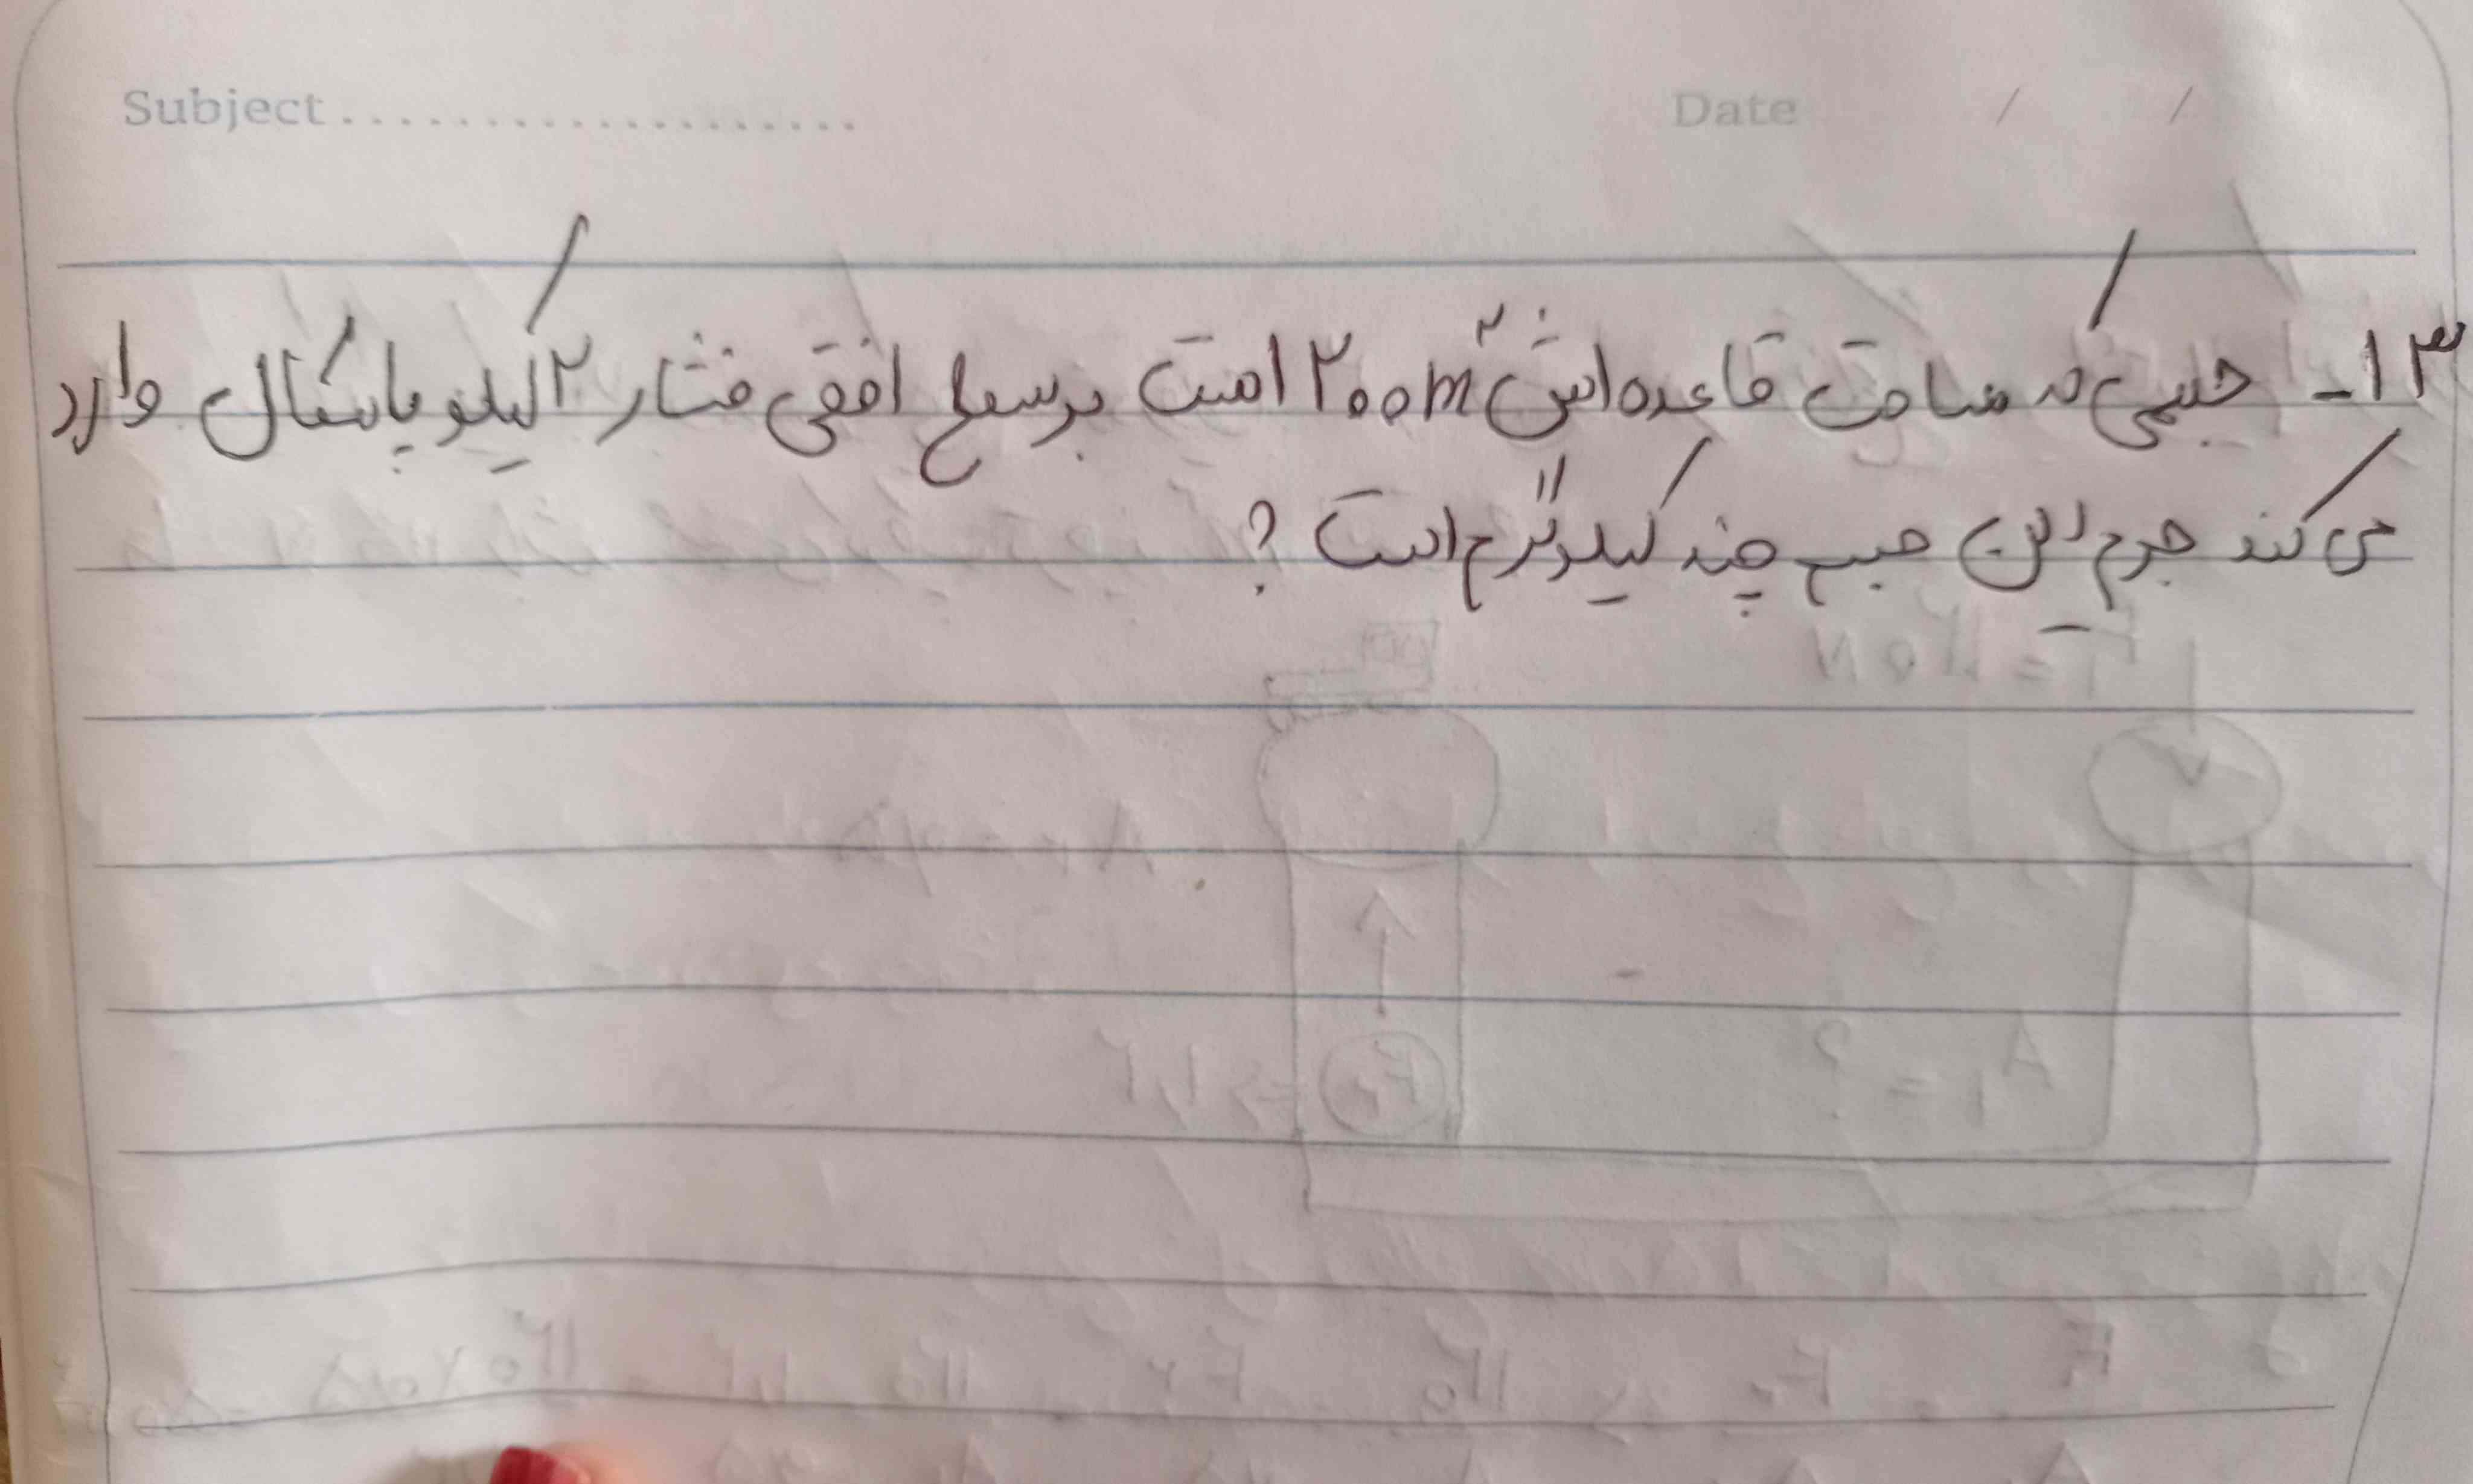 Subject .................... Date / /
۱۳- جسمی که مساحت قاعده‌اش ۲۰۰m² است بر سطح افقی فشار ۲ کیلو پاسکال وارد
می‌کند جرم این جسم چند کیلوگرم است؟